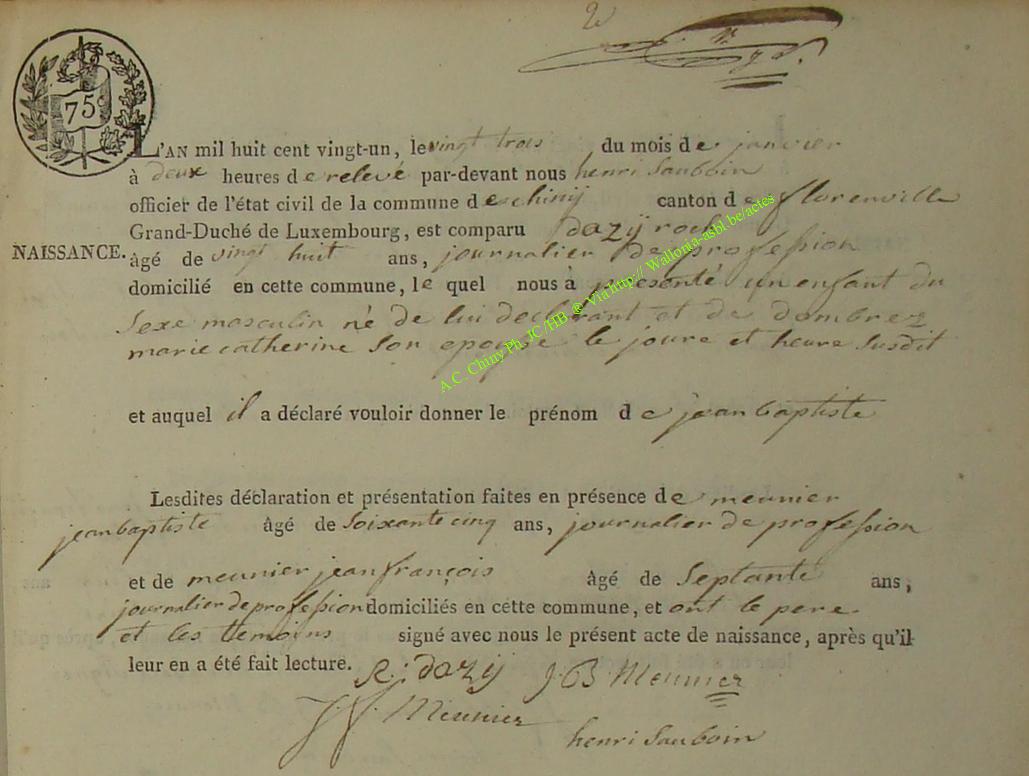 2
75c
L'AN mil huit cent vingt-un, le vingt trois du mois de janvier
à deux heures de relevé par-devant nous henri Sauboin
officier de l'état civil de la commune de chinij canton de florenville
Grand-Duché de Luxembourg, est comparu dazij roch
NAISSANCE. âgé de vingt huit ans, journalier de profession
domicilié en cette commune, le quel nous à présenté un enfant du
Sexe masculin né de lui declarant et de dombrez
marie catherine Son epouse le joure et heure Susdit
et auquel il a déclaré vouloir donner le prénom de jean baptiste
Lesdites déclaration et présentation faites en présence de meunier
jean baptiste âgé de Soixante cinq ans, journalier de profession
et de meunier jean françois âgé de Septante ans,
journalier de profession domiciliés en cette commune, et ont le pere
et les temoins signé avec nous le présent acte de naissance, après qu'il
leur en a été fait lecture. R: dazij J. B Meunier
J f. Meunier
henri Sauboin
A.C. Chiny Ph. JC/HB @ Via http:// Wallonia-asbl.be/actes